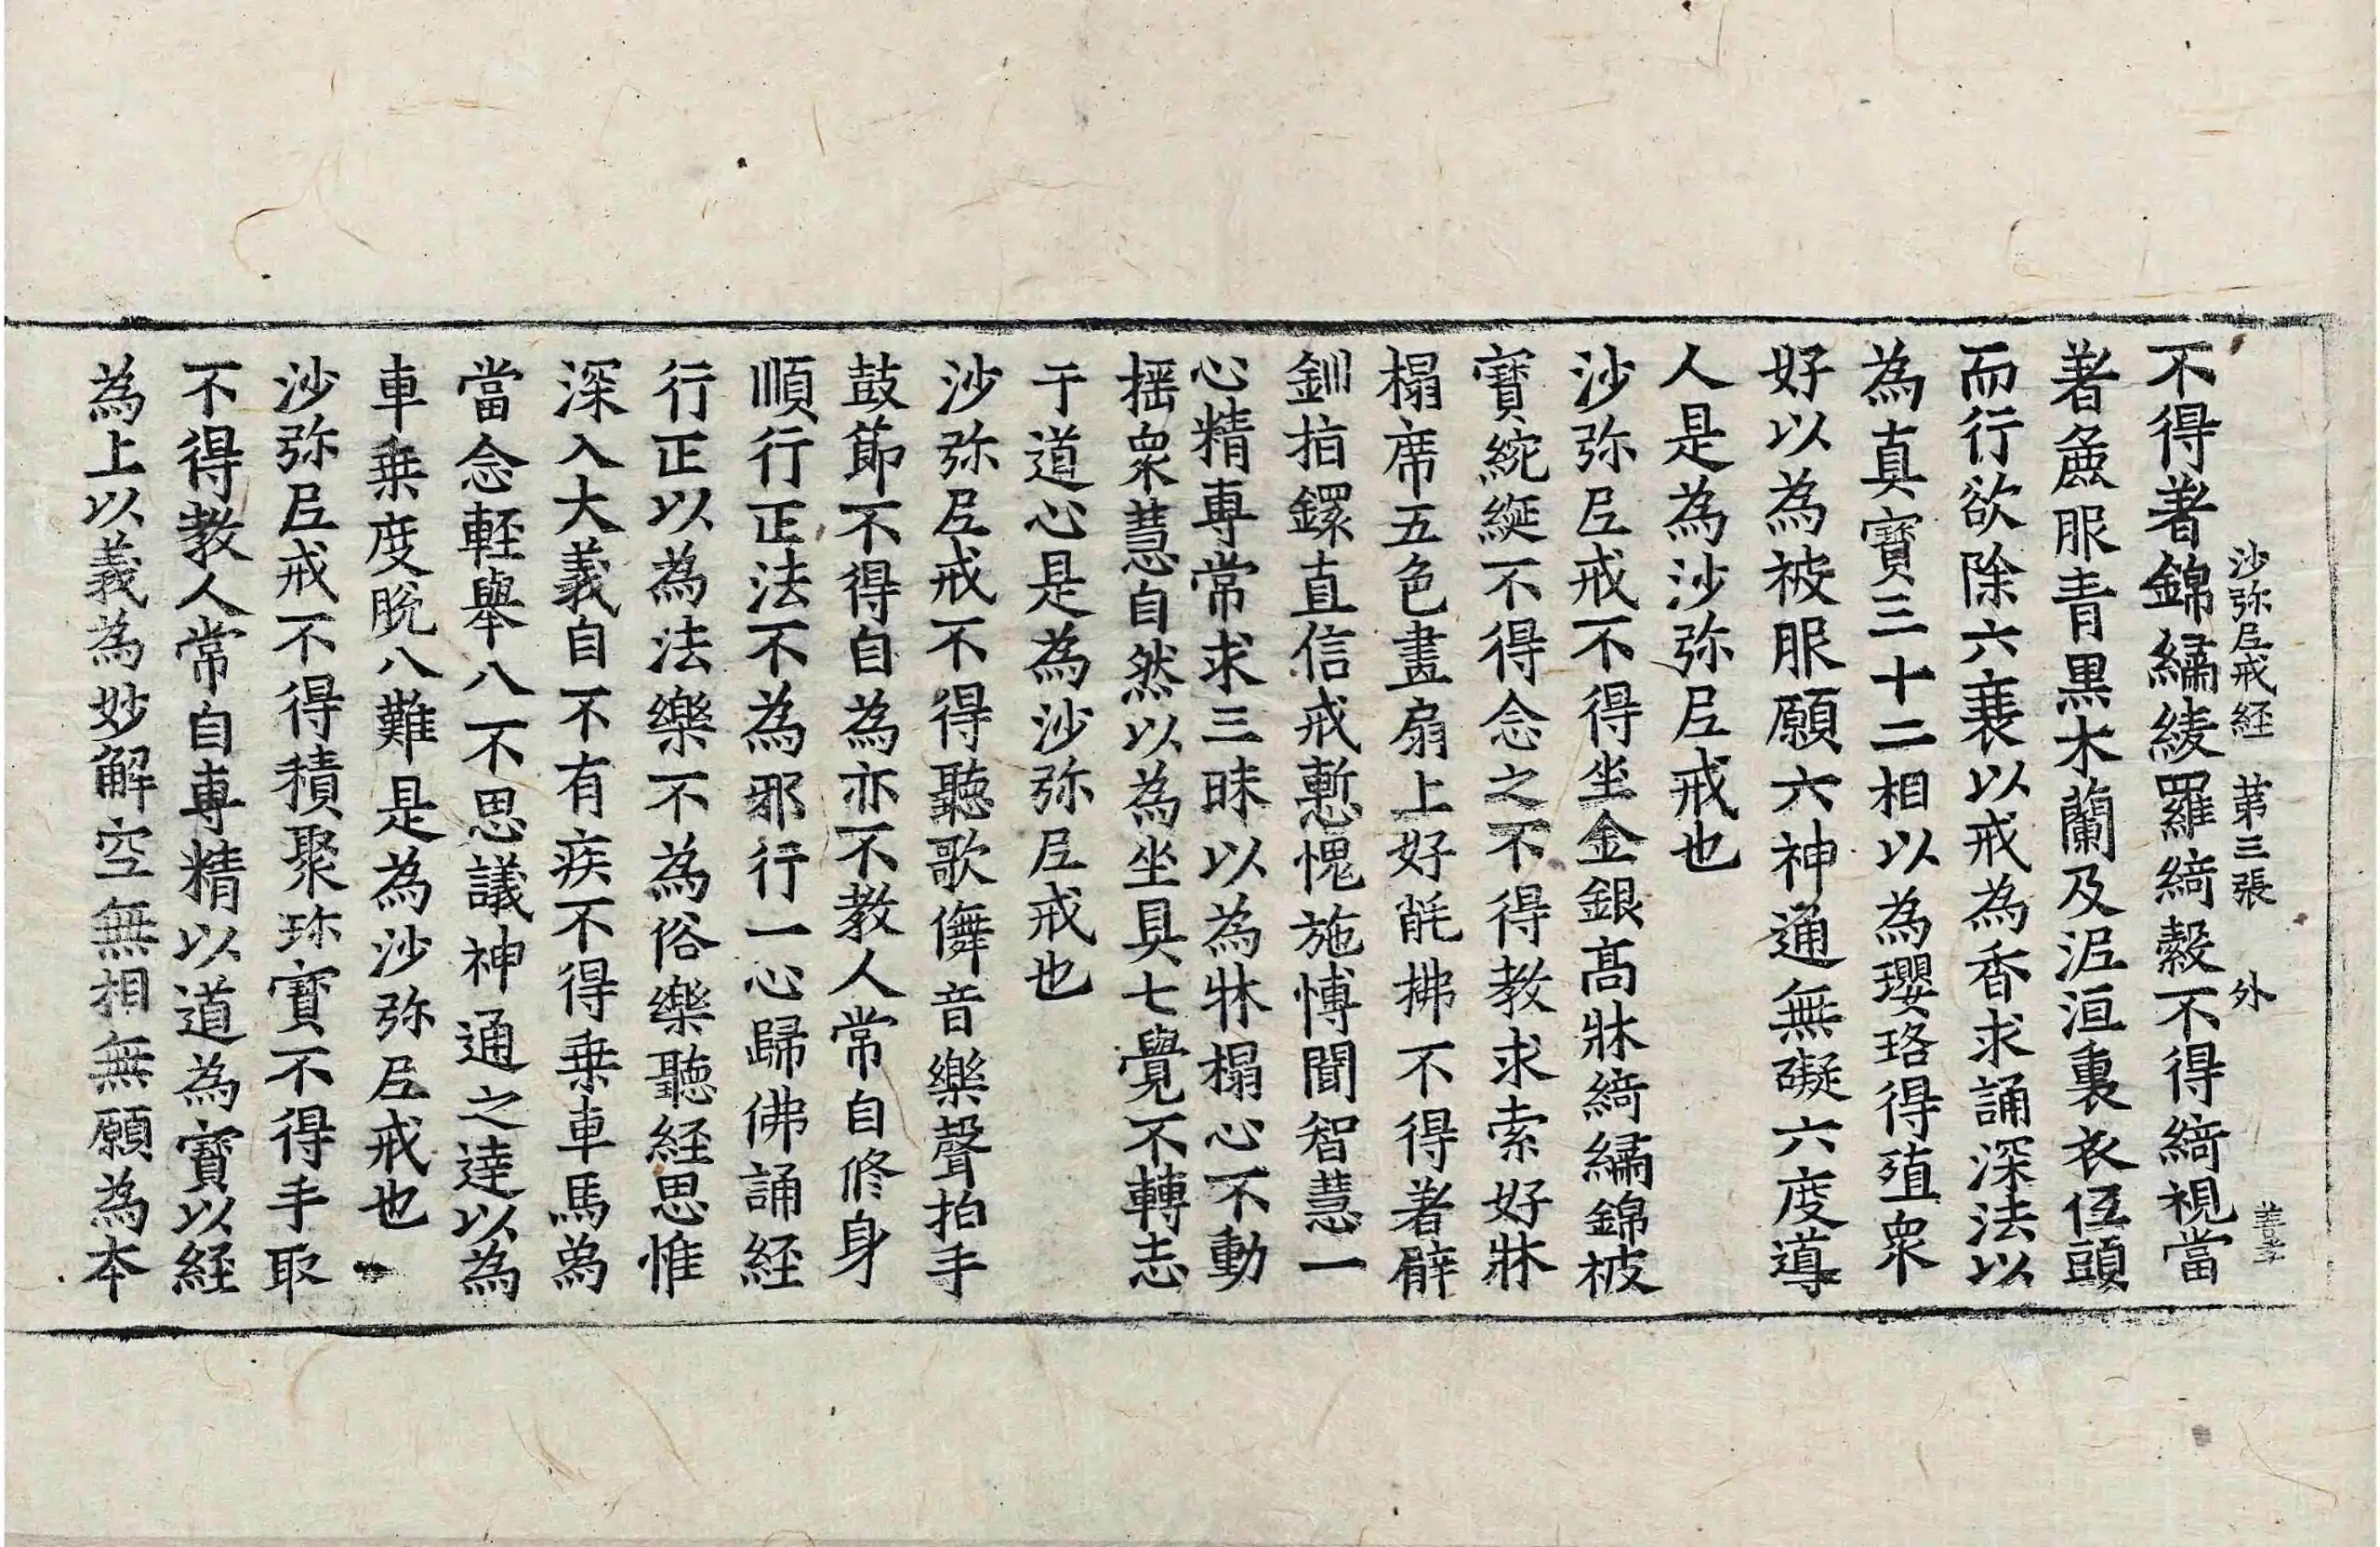 不得著錦繡綾羅綺縠不得綺視當
沙弥尼戒経 第三張 外
著麁服青黒木蘭及泥洹裏衣伍頭
而行欲除六衰以戒為香求誦深法以
為真寶三十二相以為瓔珞得殖衆
好以為被服願六神通無礙六度導
人是為沙弥尼戒也
沙弥尼戒不得坐金銀髙牀綺繡錦被
寶綩綖不得念之不得教求索好牀
榻席五色畫扇上好毦拂不得著臂
釧拍鏍直信戒慙愧施愽聞智慧一
心精專常求三昧以為牀榻心不動
揺衆慧自然以為坐具七覺不轉志
于道心是為沙弥尼戒也
沙弥尼戒不得聽歌儛音樂聲拍手
鼓節不得自為亦不教人常自修身
順行正法不為邪行一心歸佛誦経
行正以為法樂不為俗樂聽経思惟
深入大義自不有疾不得乗車馬為
當念軽舉八不思議神通之達以為
車乗度脱八難是為沙弥尼戒也
沙弥尼戒不得積聚珎寶不得手取
不得教人常自專精以道為寶以経
為上以義為妙解空無相無願為本